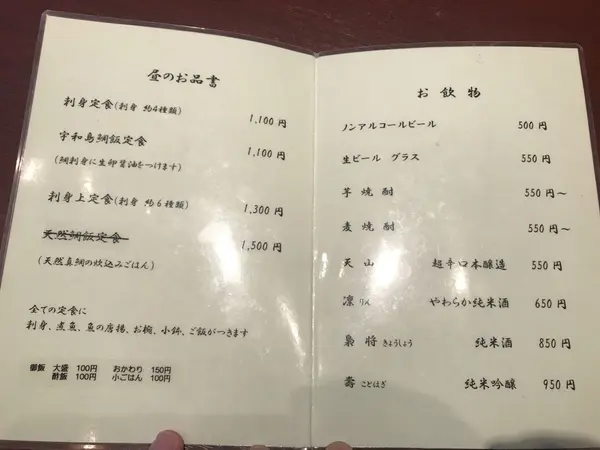 昼のお品書
刺身定食(刺身 約4種類)
1,100円
宇和島鯛飯定食
1,100円
(鯛刺身に生卵醤油をつけます)
刺身上定食(刺身 約6種類)
1,300円
天然鯛飯定食
1,500円
(天然真鯛の炊込みごはん)
全ての定食に
刺身、煮魚、魚の唐揚、お椀、小鉢、ご飯がつきます
御飯 大盛 100円 おかわり 150円
酢飯 100円 小ごはん 100円
お飲物
ノンアルコールビール 500円
生ビール グラス 550円
芋焼酎 550円～
麦焼酎 550円～
天山 超辛口本醸造 550円
凛りん やわらか純米酒 650円
梟将きょうしょう 純米酒 850円
壽ことほぎ 純米吟醸 950円